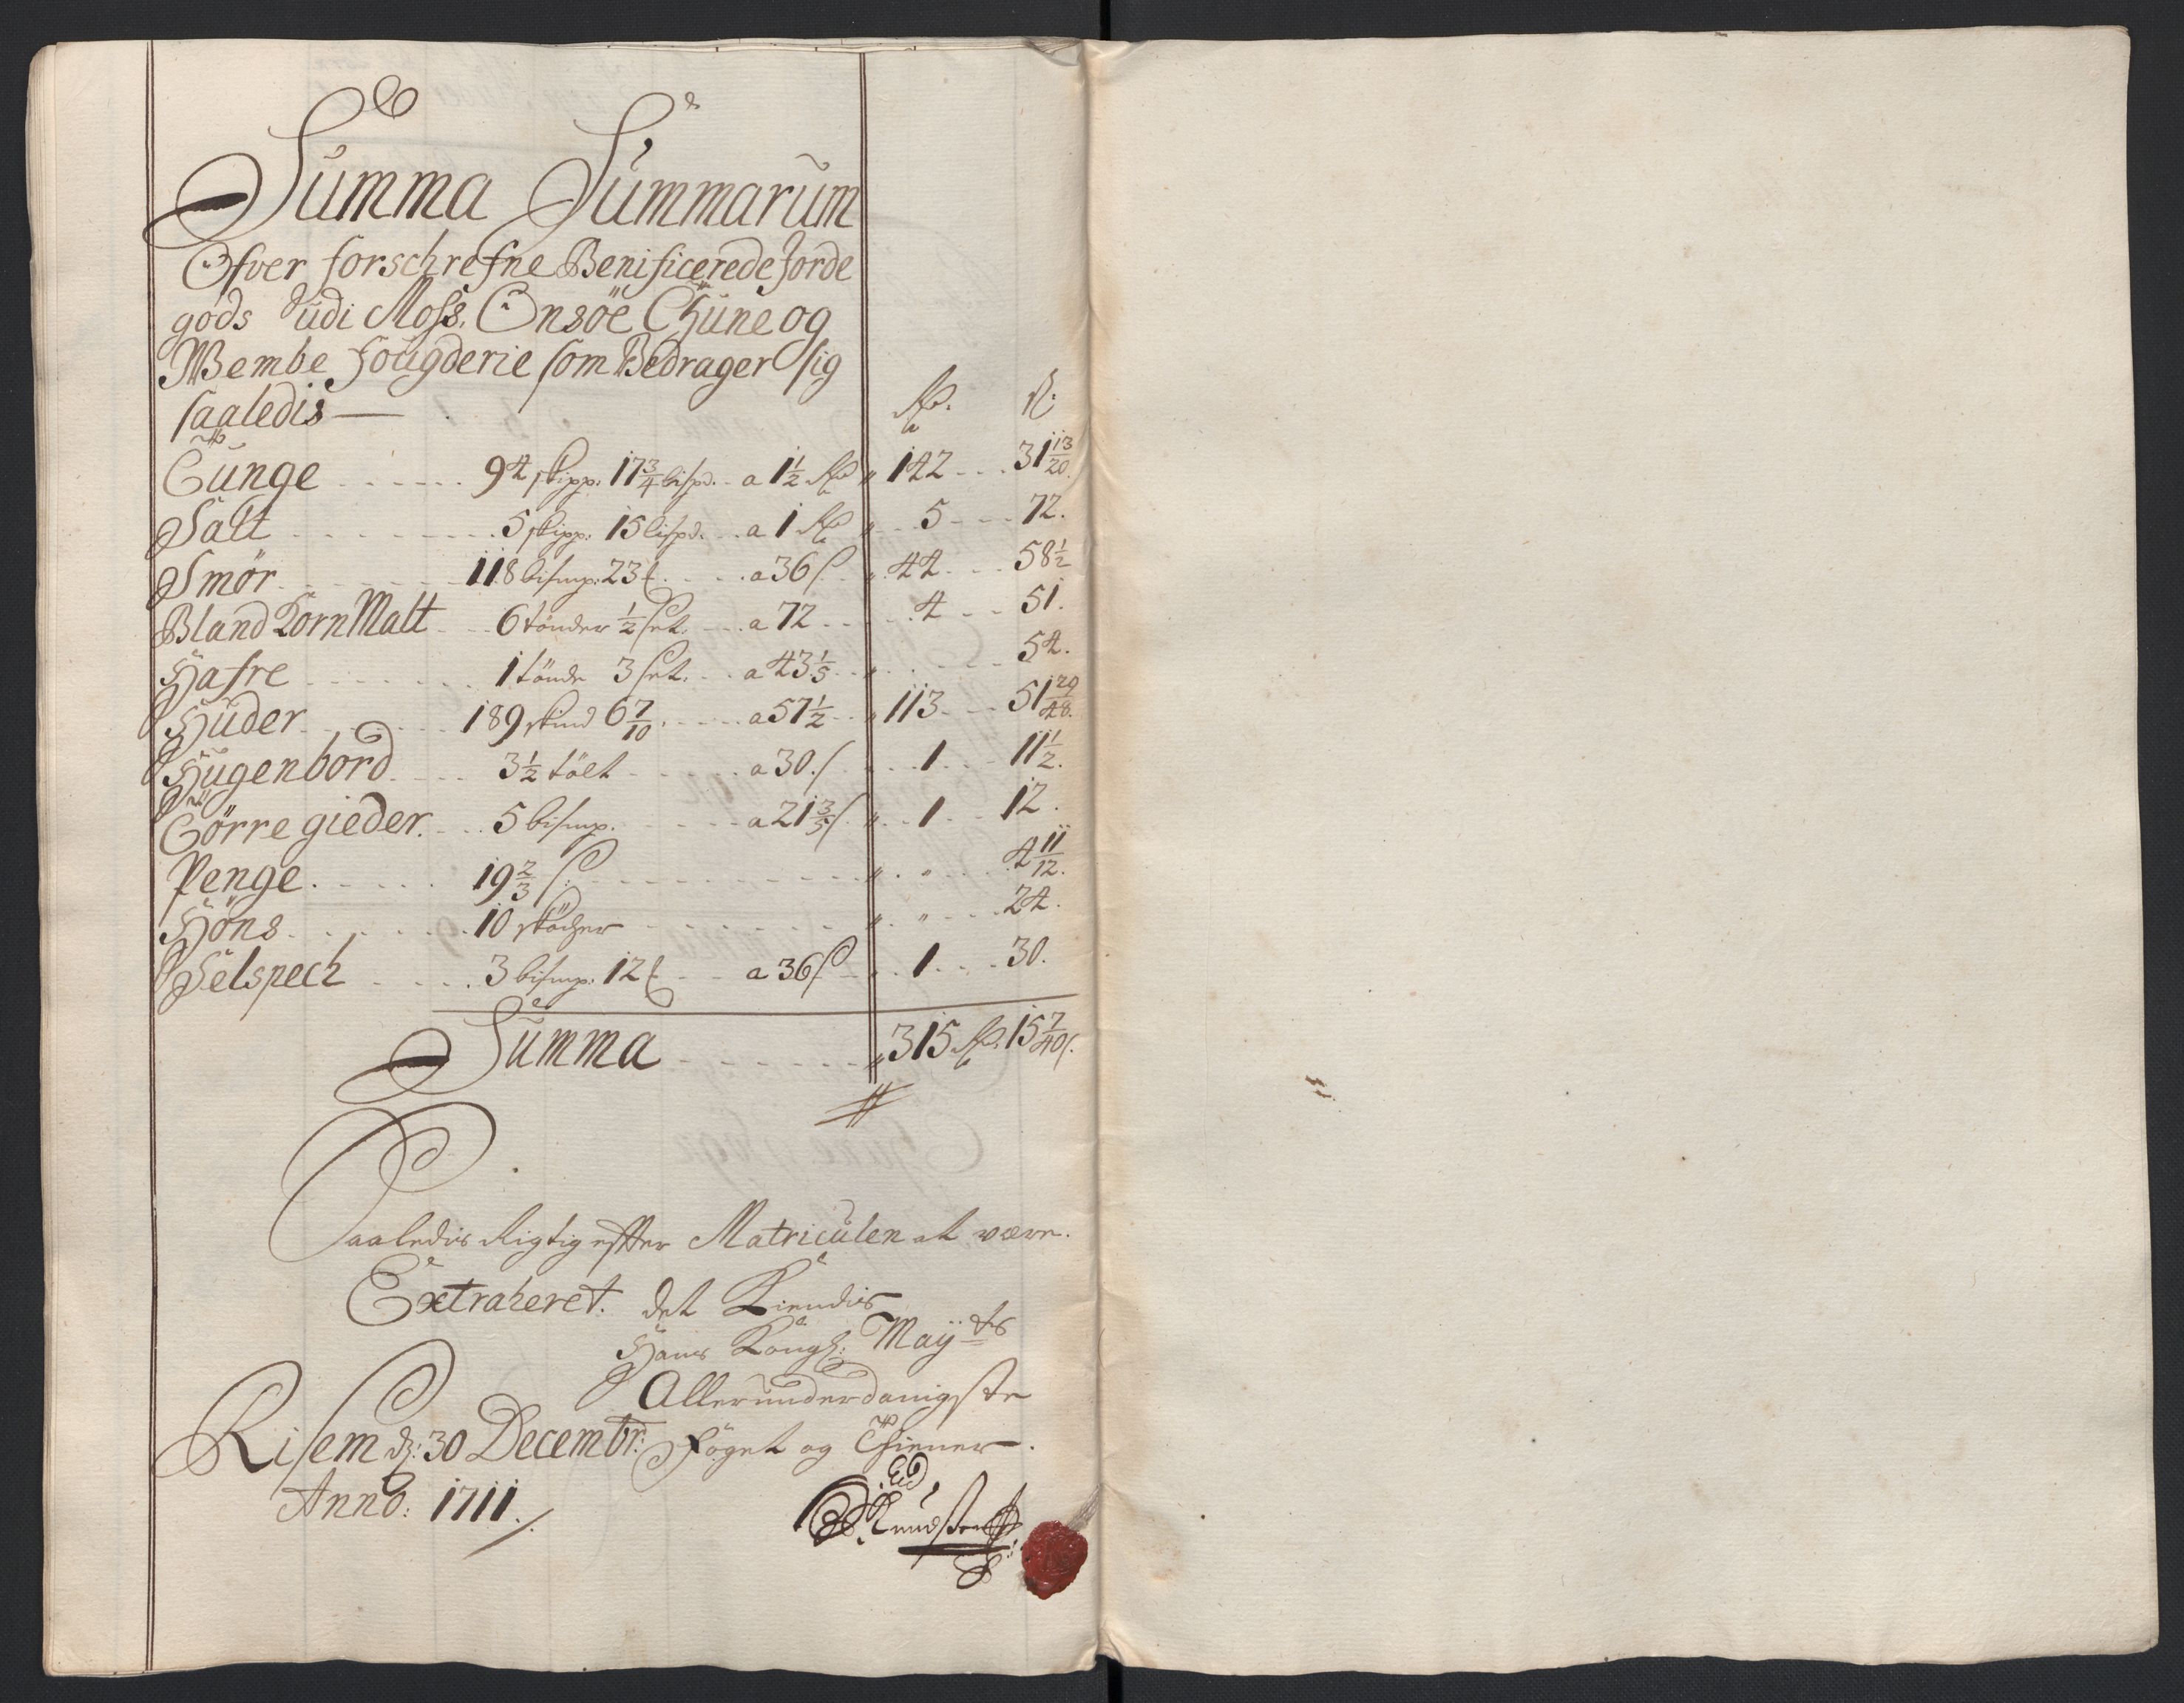 Summa Summarum
Ofver forschrefne Benificerede Jorde
gods udi Moss, Onsöe Thune og
Wembe fougderie som Bedrager sig
saaledis —
Rd. s.
Tunge 94 skipp: 17 3/4 lispd. a 1 1/2 Rd 142 31 13/20
Salt 5 skipp: 15 lispd. a 1 Rd 5 72.
Smör 118 bismp: 23 a 36 s 44 58 1/2
Bland Korn Malt 6 tönder 1/2 set. a 72 4 51.
Hafre 1 tönde 3 set. a 43 1/5 54.
Huder 189 skind 6 7/10 a 57 1/2 113 51 29/48.
Hugenbord 3 1/2 tölt a 30 s 1 11 1/2.
Törre gieder 5 bismp. a 21 3/5 s 1 12.
Penge 19 2/3 s: 4 11/12.
Höns 10 24.
Selspech 3 bismp: 12 a 36 s 1 30.
Summa 315 Rd. 15 7/40 s.
Saaledis Rigtig effter Matriculen at være.
Extraheret. det Kiendis
Hans Kongl: Maÿts
Allerunderdanigste
Risem d: 30 Decembr: Foget og Thiener.
Anno: 1711.